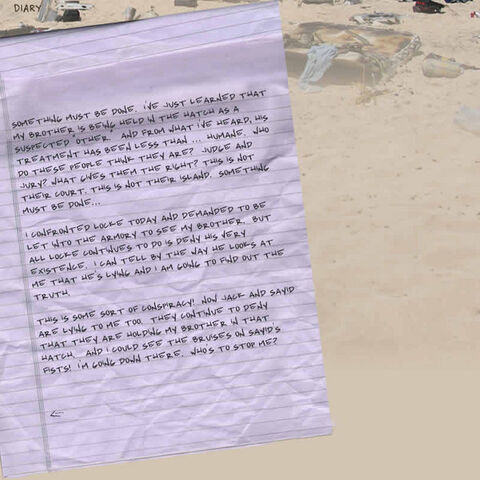 DIARY
SOMETHING MUST BE DONE. I'VE JUST LEARNED THAT
MY BROTHER IS BEING HELD IN THE HATCH AS A
SUSPECTED OTHER. AND FROM WHAT I'VE HEARD, HIS
TREATMENT HAS BEEN LESS THAN ... HUMANE. WHO
DO THESE PEOPLE THINK THEY ARE? JUDGE AND
JURY? WHAT GIVES THEM THE RIGHT? THIS IS NOT
THEIR COURT. THIS IS NOT THEIR ISLAND. SOMETHING
MUST BE DONE...
I CONFRONTED LOCKE TODAY AND DEMANDED TO BE
LET INTO THE ARMORY TO SEE MY BROTHER. BUT
ALL LOCKE CONTINUES TO DO IS DENY HIS VERY
EXISTENCE. I CAN TELL BY THE WAY HE LOOKS AT
ME THAT HE'S LYING AND I AM GOING TO FIND OUT THE
TRUTH.
THIS IS SOME SORT OF CONSPIRACY! NOW JACK AND SAYID
ARE LYING TO ME TOO. THEY CONTINUE TO DENY
THAT THEY ARE HOLDING MY BROTHER IN THAT
HATCH. AND I COULD SEE THE BRUSES ON SAYID'S
FISTS! I'M GOING DOWN THERE. WHO'S TO STOP ME?